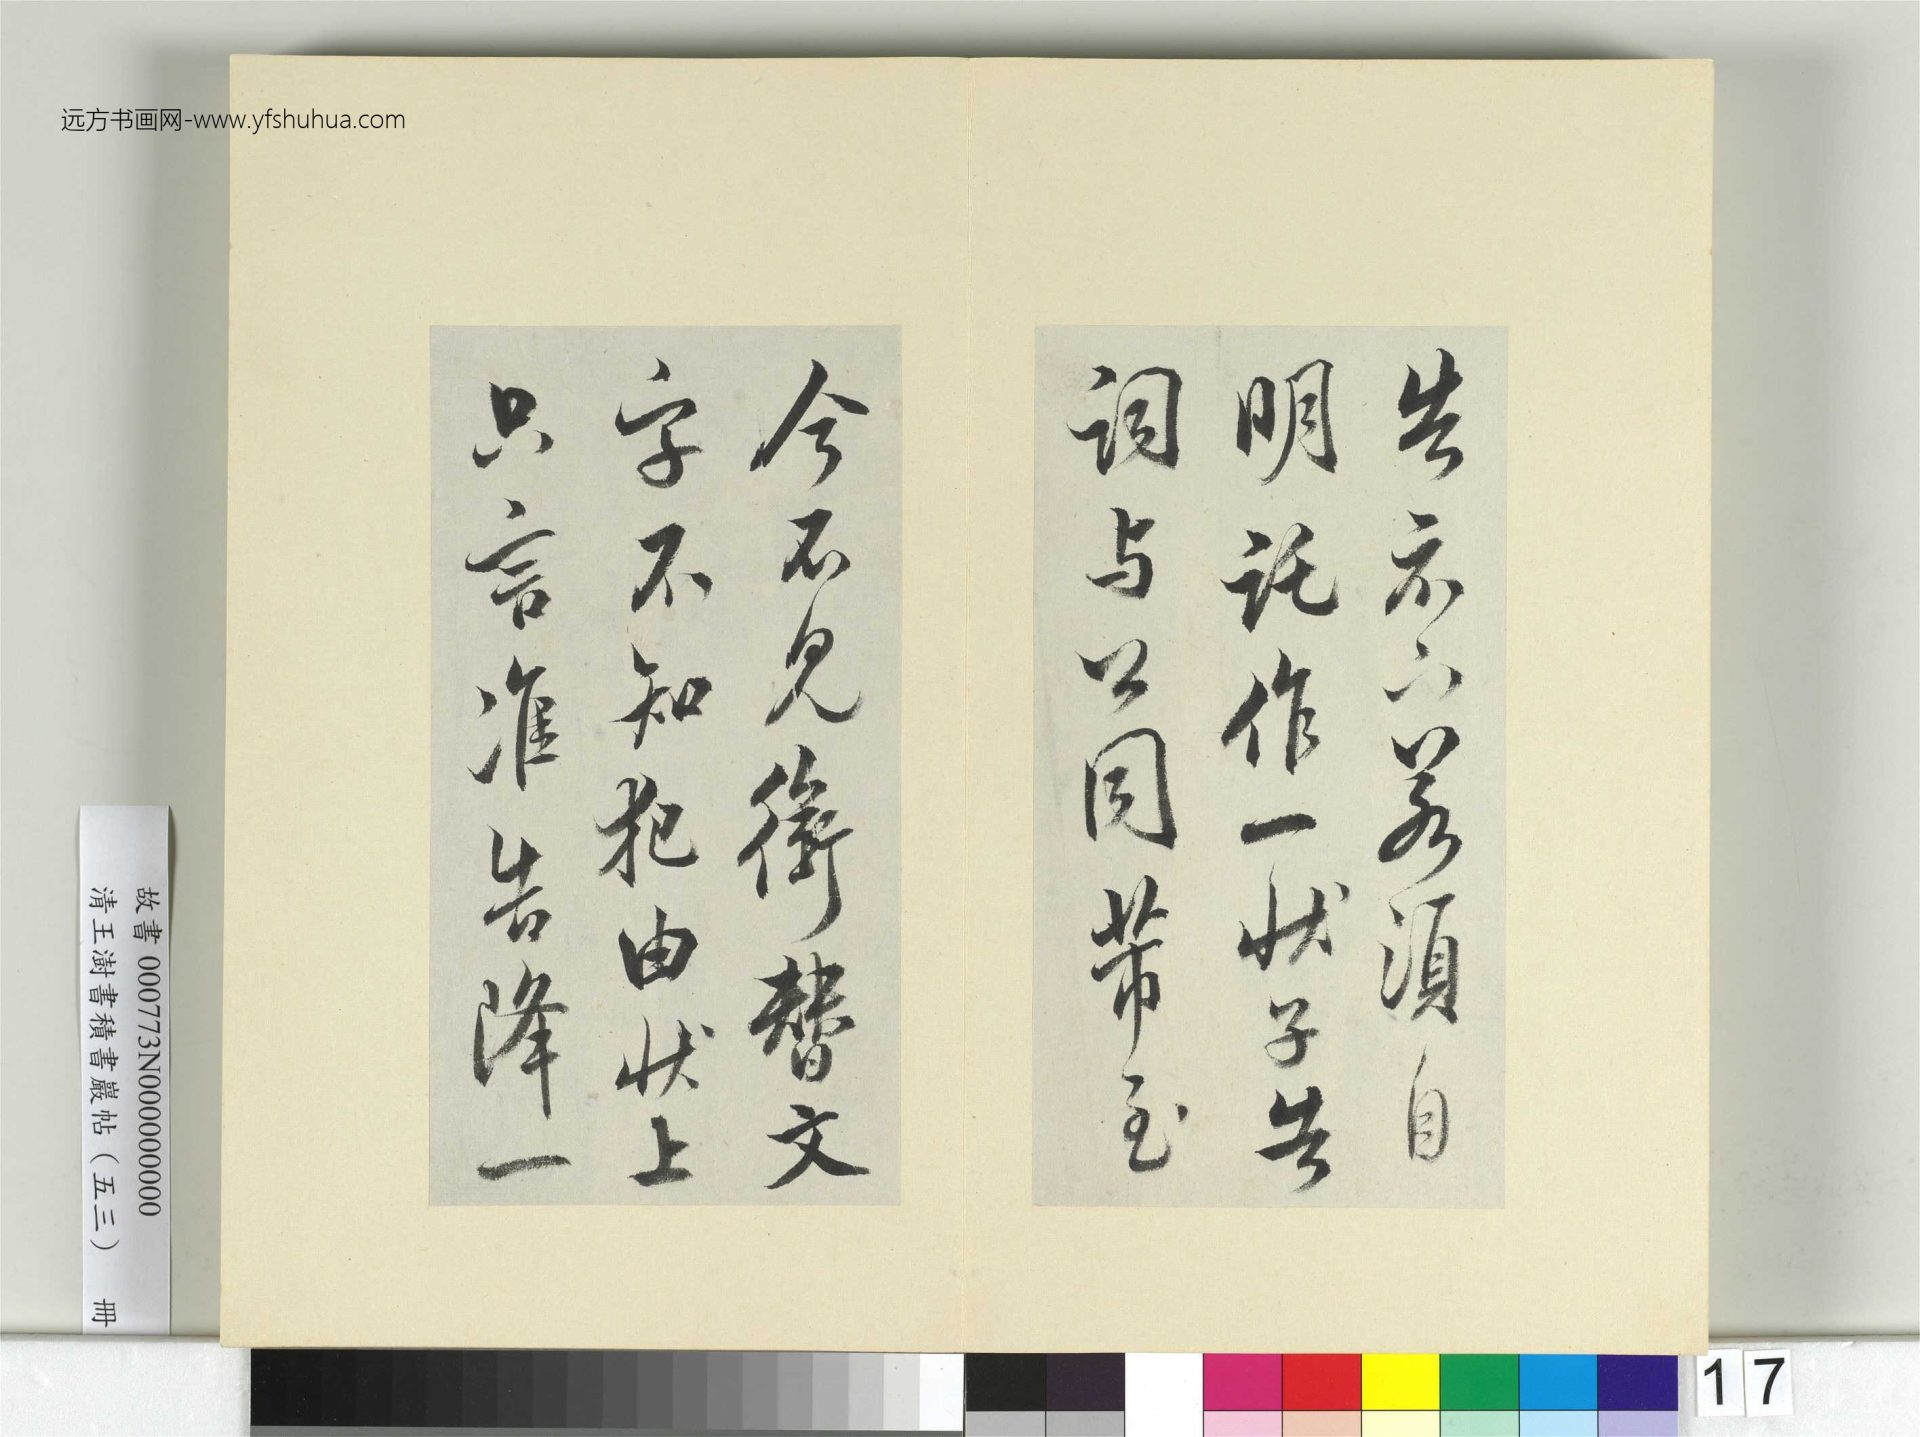 远方书画网-www.yfshuhua.com
告示下若須自
明託作一状子告
詞与公同帶至
今不見衝替文
字不知犯由状上
只言准告降一
故書 000773N000000000
清王澍書積書巖帖(五三) 冊
17